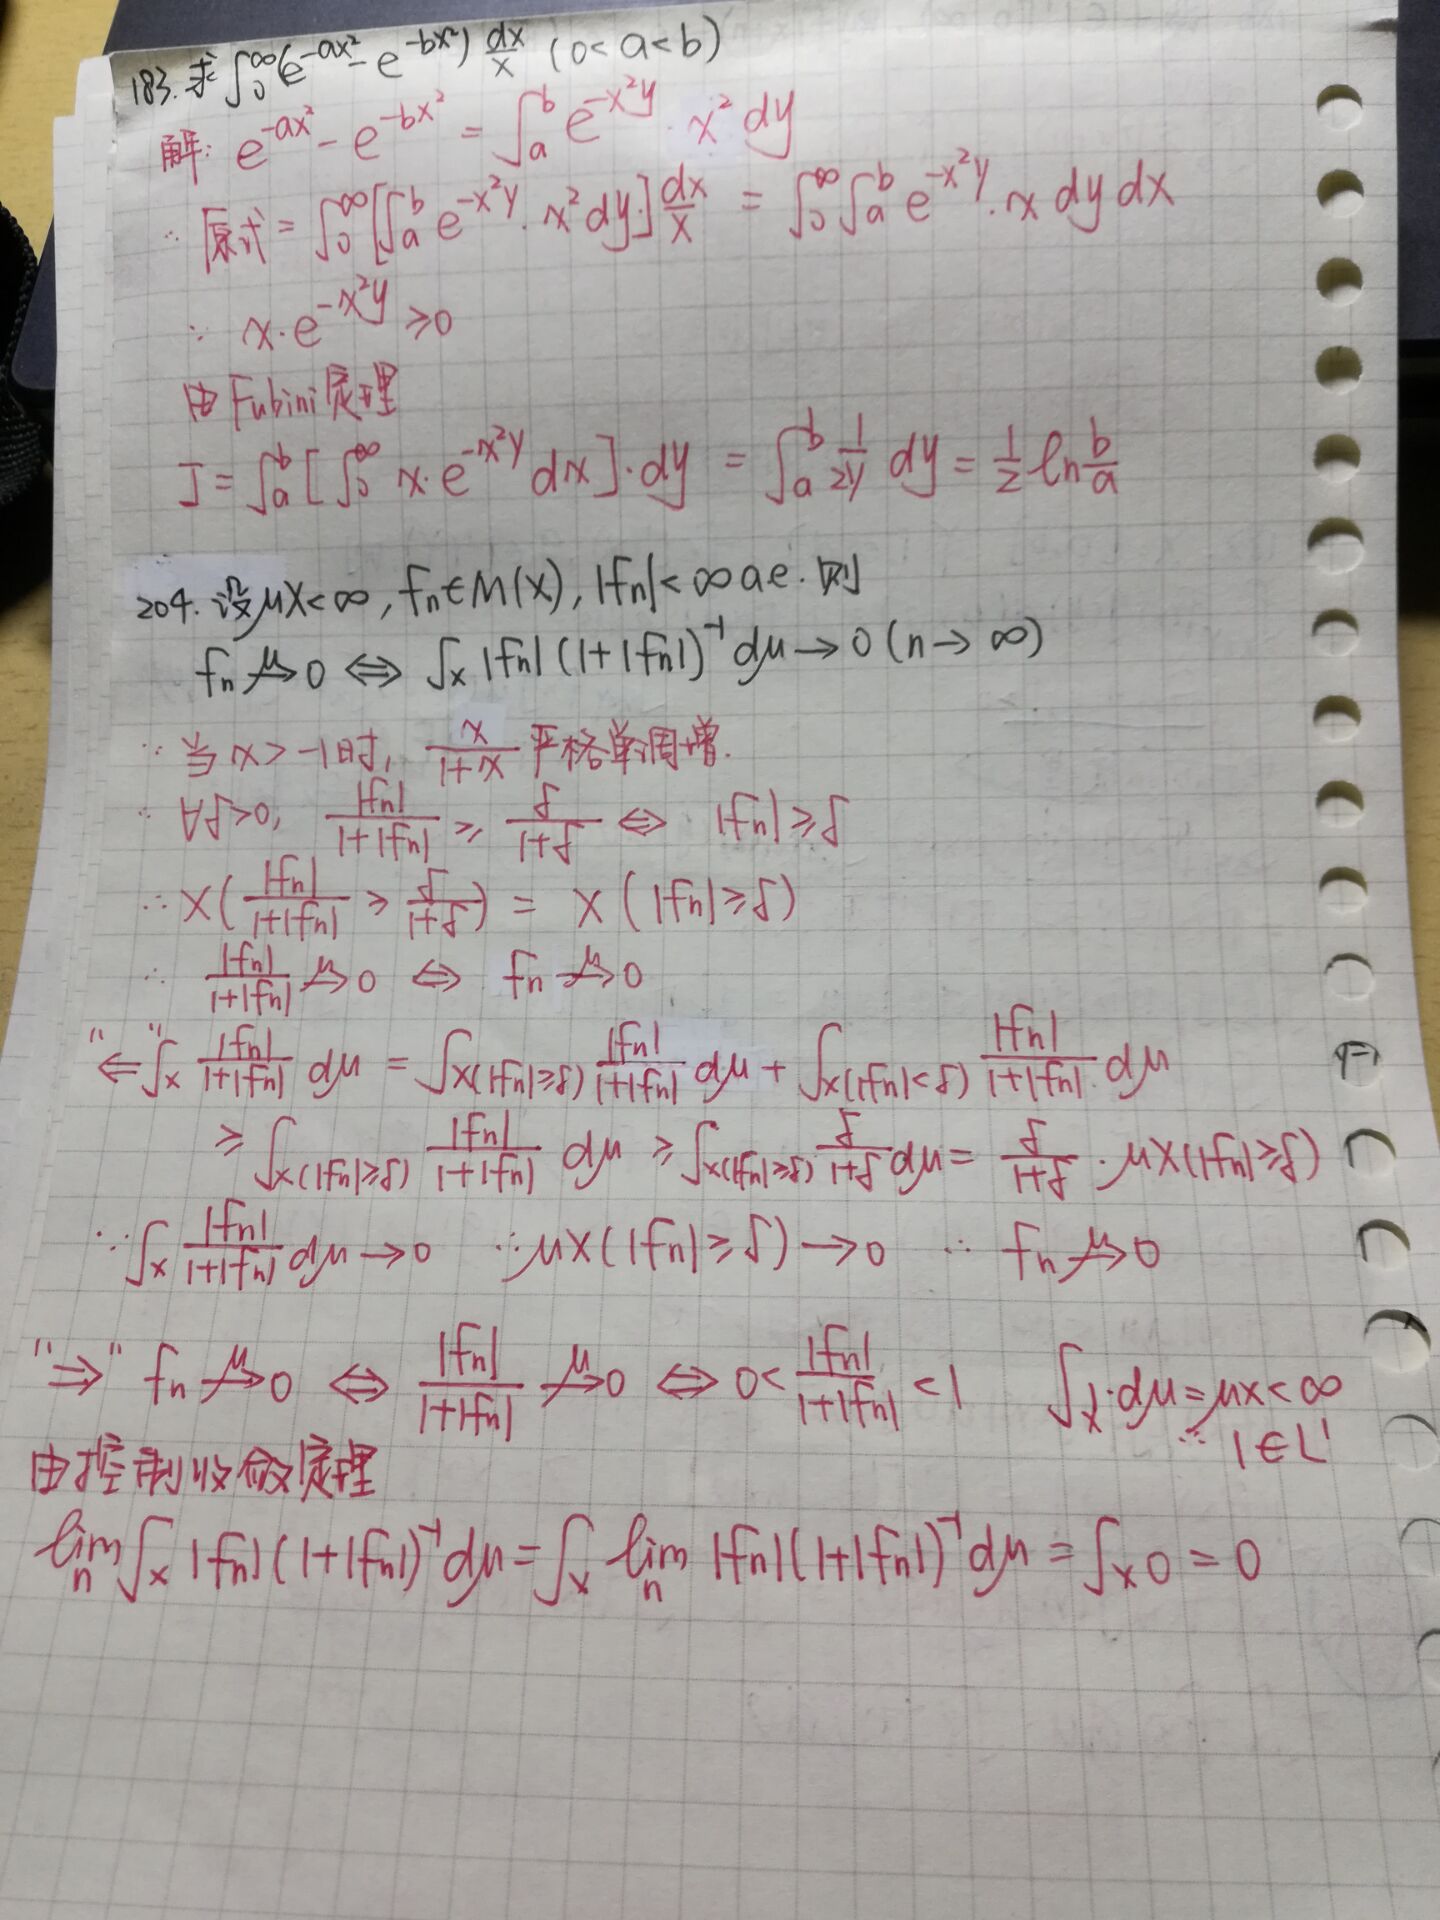 183. 求∫₀^∞(e^{-ax²} - e^{-bx²}) dx/x (0<a<b)
解: e^{-ax²} - e^{-bx²} = ∫_a^b e^{-x²y} · x² dy
∴ 原式 = ∫₀^∞[∫_a^b e^{-x²y} · x² dy] dx/x = ∫₀^∞∫_a^b e^{-x²y} · x dy dx
∵ x·e^{-x²y} ≥ 0
由Fubini定理
J = ∫_a^b [∫₀^∞ x·e^{-x²y} dx]·dy = ∫_a^b 1/(2y) dy = 1/2 ln b/a
204. 设μX<∞, fn∈M(X), |fn|<∞ a.e. 则
fn →^μ 0 ⇔ ∫_X |fn|(1+|fn|)^{-1} dμ → 0 (n→∞)
∵ 当x>-1时, x/(1+x) 严格单调增.
∴ ∀δ>0, |fn|/(1+|fn|) ≥ δ/(1+δ) ⇔ |fn| ≥ δ
∴ X(|fn|/(1+|fn|) ≥ δ/(1+δ)) = X(|fn| ≥ δ)
∴ |fn|/(1+|fn|) →^μ 0 ⇔ fn →^μ 0
"⇐" ∫_X |fn|/(1+|fn|) dμ = ∫_{X(|fn|≥δ)} |fn|/(1+|fn|) dμ + ∫_{X(|fn|<δ)} |fn|/(1+|fn|) dμ
≥ ∫_{X(|fn|≥δ)} |fn|/(1+|fn|) dμ ≥ ∫_{X(|fn|≥δ)} δ/(1+δ) dμ = δ/(1+δ) · μX(|fn|≥δ)
∵ ∫_X |fn|/(1+|fn|) dμ → 0 ∴ μX(|fn|≥δ) → 0 ∴ fn →^μ 0
"⇒" fn →^μ 0 ⇔ |fn|/(1+|fn|) →^μ 0 ⇔ 0 < |fn|/(1+|fn|) < 1 ∫_X 1·dμ = μX < ∞
∴ 1∈L¹
由控制收敛定理
lim_n ∫_X |fn|(1+|fn|)^{-1} dμ = ∫_X lim_n |fn|(1+|fn|)^{-1} dμ = ∫_X 0 = 0